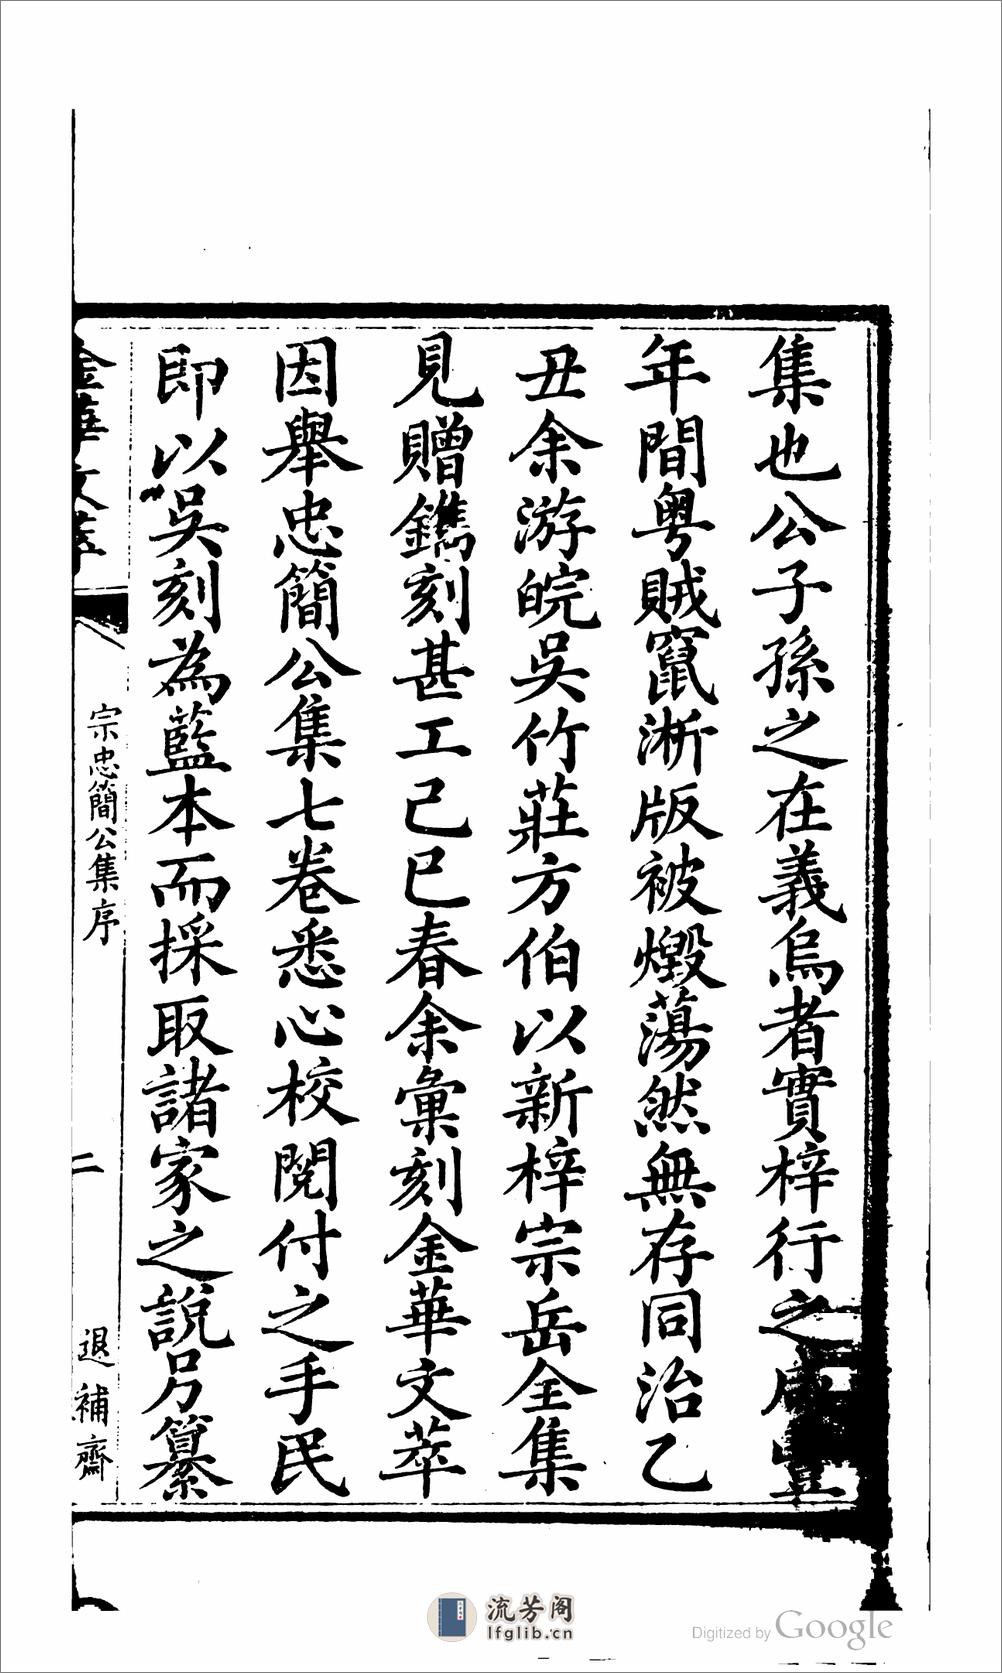 集也公子孫之在義烏者實梓行之咸豐
年間粵賊竄淅版被燬蕩然無存同治乙
丑余游皖吳竹莊方伯以新梓宗岳全集
見贈鐫刻甚工己巳春余彙刻金華文萃
因舉忠簡公集七卷悉心校閱付之手民
即以吳刻為藍本而採取諸家之說另纂
金華文萃
宗忠簡公集序
二
退補齋
流芳阁
lfglib.cn
Digitized by Google